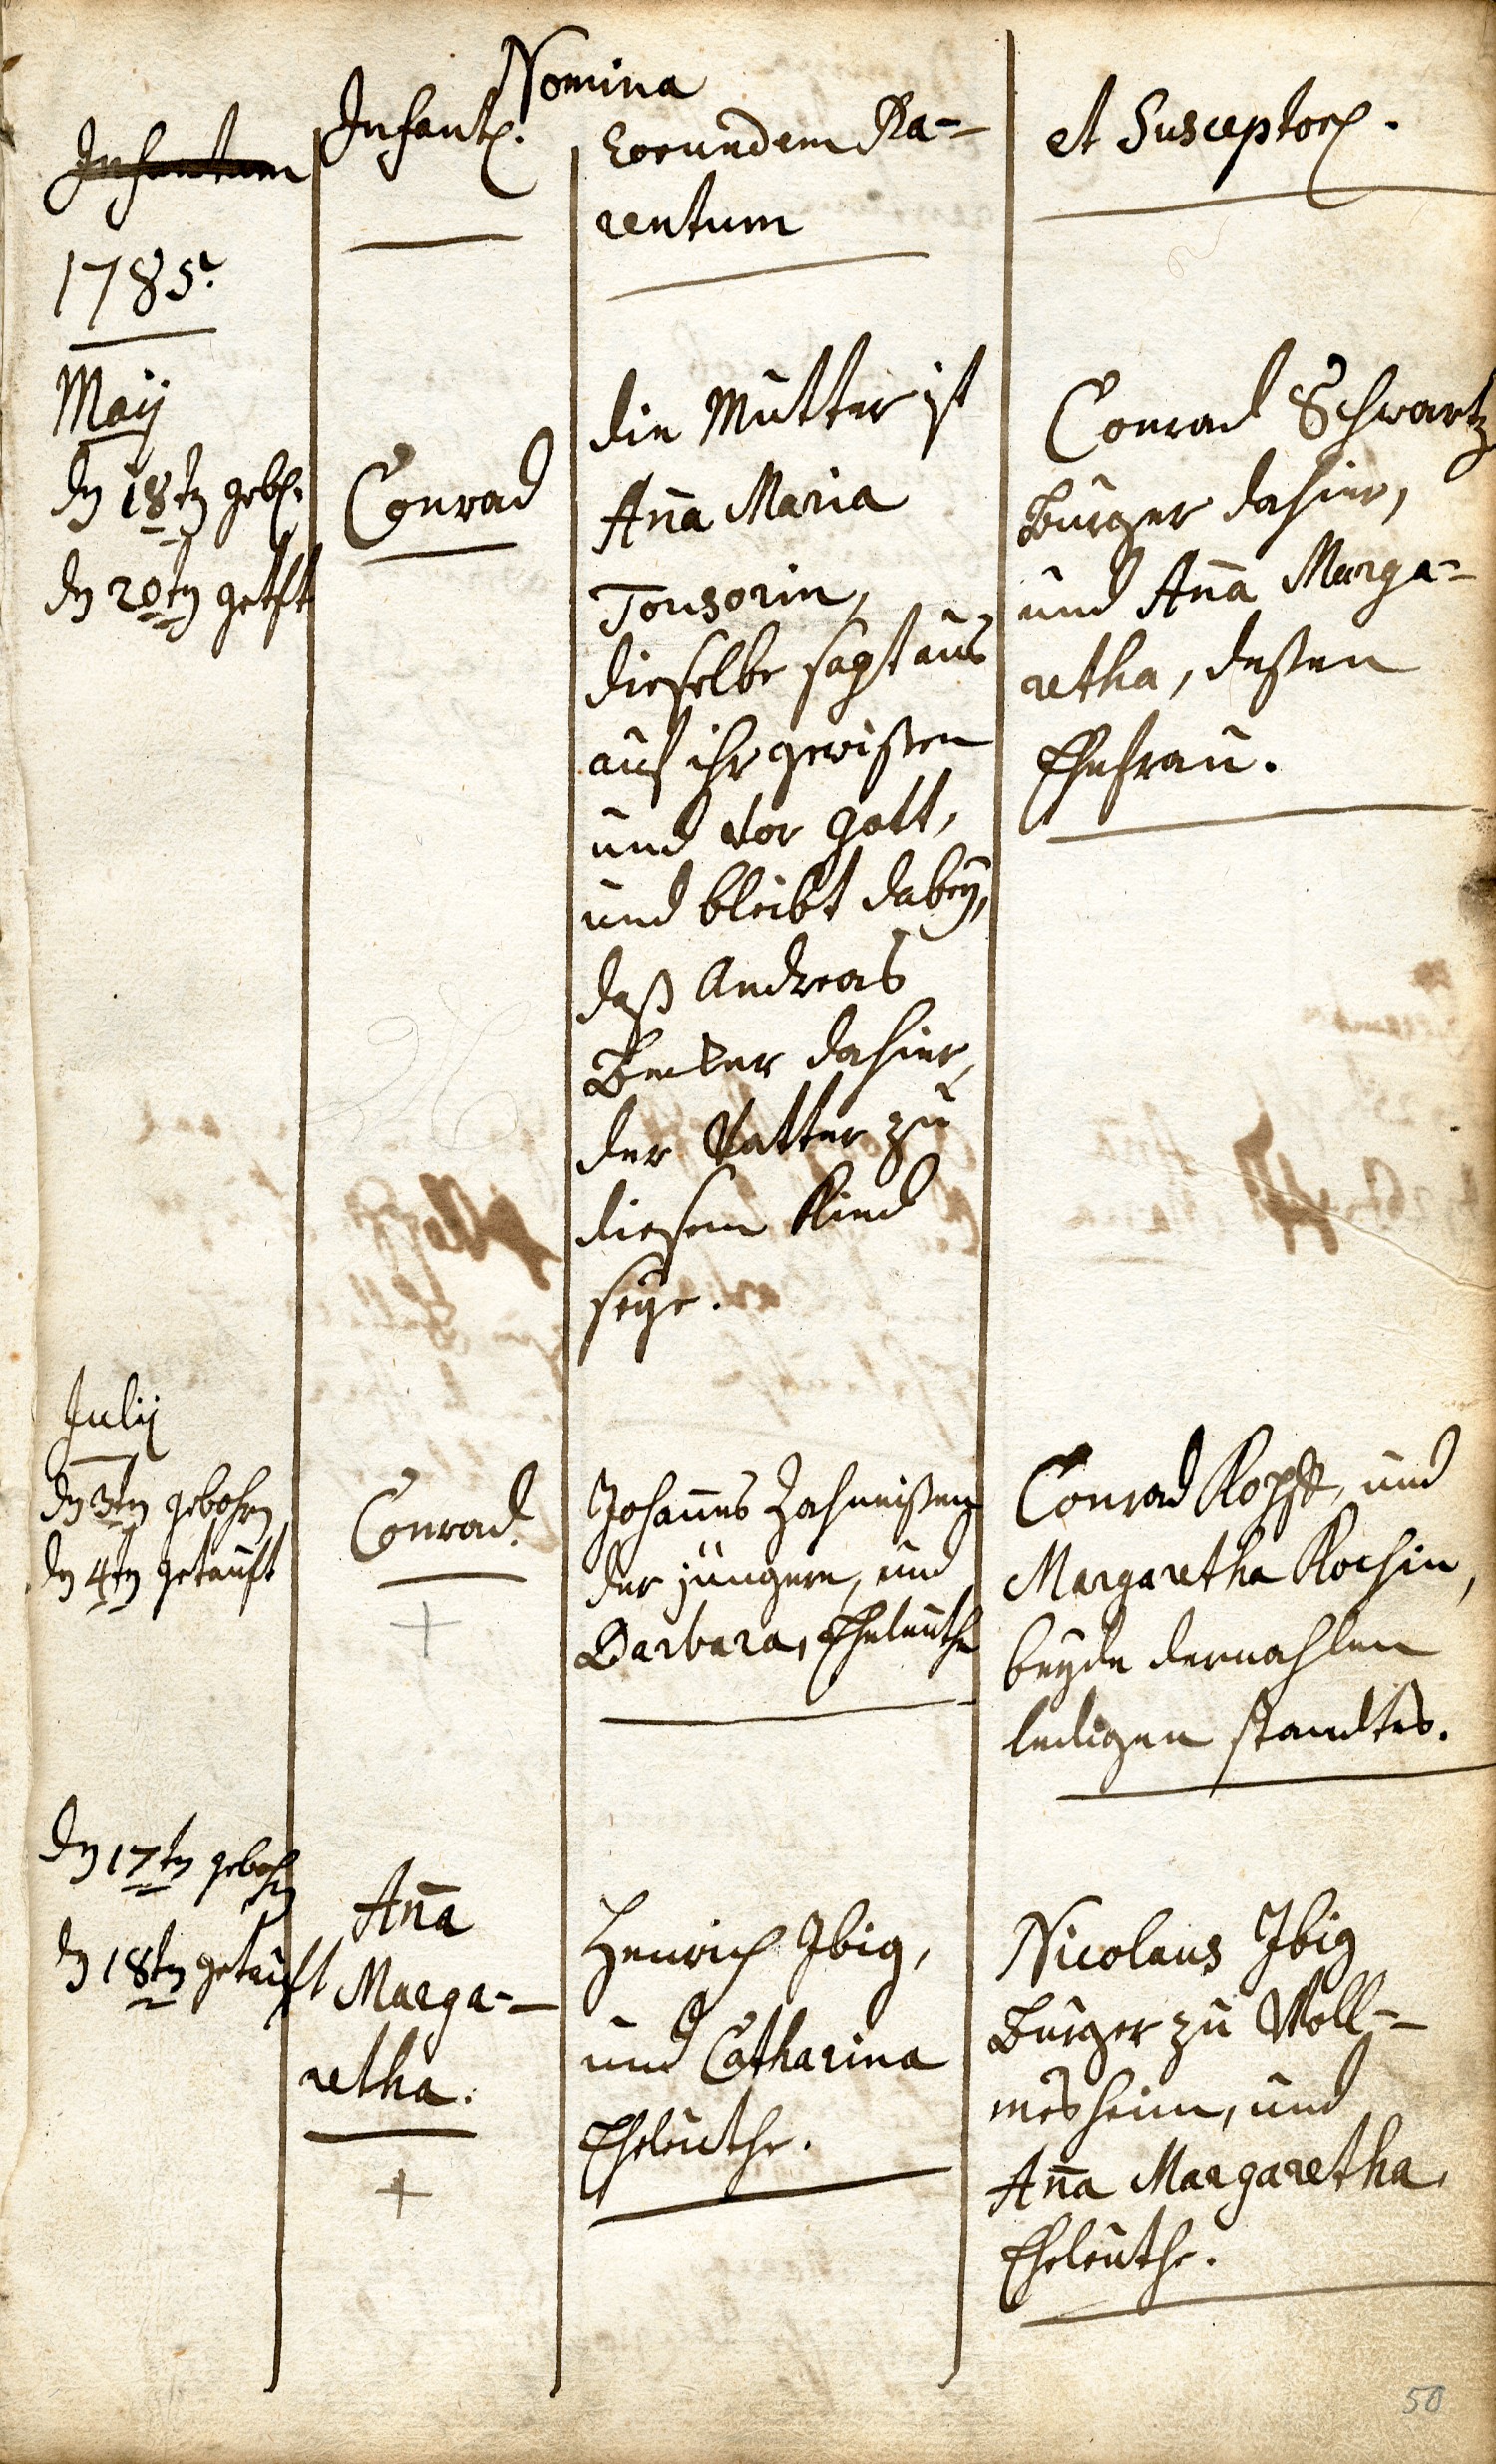 Nomina
Infantum
Infant.
Eorundem Pa-
rentum
et Susceptor.
1785.
Maij
dn 18tn geb.
dn 20tn getft
Conrad
die Mutter ist
Anna Maria
Tonsorin,
dieselbe sagt aus
auf ihr gewißen
und vor Gott,
und bleibt dabey,
daß Andreas
Becker dahier,
der Vatter zu
diesem Kind
seye.
Conrad Schwartz
Burger dahier,
und Anna Marga-
retha, deßen
Ehefrau.
Julij
dn 3tn gebohrn
dn 4tn getauft
Conrad.
Johannes
der jüngere, und
Barbara, Eheleuthe
Conrad Kopff, und
Margaretha Kochin,
beyde dermahlen
ledigen standtes.
dn 17tn gebohrn
dn 18tn getauft
Anna
Marga-
retha.
Henrich Ibig,
und Catharina
Eheleuthe.
Nicolaus Ibig
Burger zu Woll-
mesheim, und
Anna Margaretha,
Eheleuthe.
50